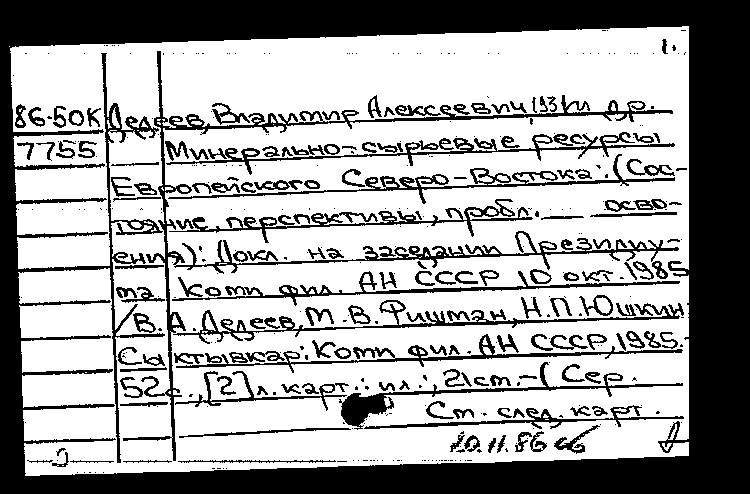 1.
86-50К Дедеев, Владимир Алексеевич и др.
7755 Минерально-сырьевые ресурсы
Европейского Северо-Востока: (Сос-
тояние, перспективы, пробл. осво-
ения): Докл. на заседании Президиу-
ма Коми фил. АН СССР 10 окт. 1985
/В. А. Дедеев, М. В. Фишман, Н. П. Юшкин.
Сыктывкар: Коми фил. АН СССР, 1985.-
52 с., [2] л. карт.: ил.; 21 см.-( Сер.
Ст. след. карт.
20.11.86